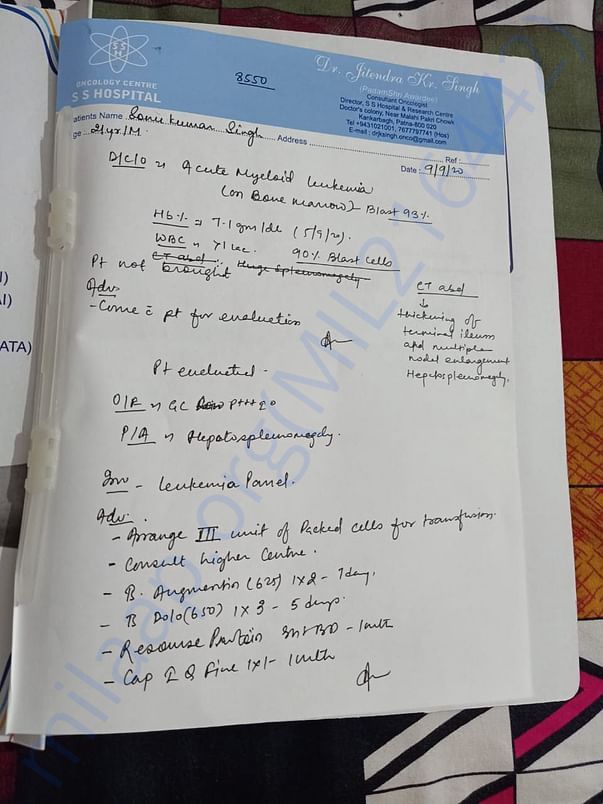 8550
SSH
ONCOLOGY CENTRE
S S HOSPITAL
Dr. Jitendra Kr. Singh
(PadamShri Awardee)
Consultant Oncologist
Director, S S Hospital & Research Centre
Doctor's colony, Near Malahi Pakri Chowk
Kankarbagh, Patna-800 020
Tel +9431021001, 7677797741 (Hos)
E-mail : drjksingh.onco@gmail.com
atients Name Sonu kumar Singh Address
ge 21yr/M. Ref :
Date : 9/9/20
D/C/O Acute Myeloid leukemia
(on Bone marrow) - Blast 93%
Hb% = 7.1 gm/dl (5/9/20).
WBC 71 lac. 90% Blast cells
CT abd : Huge splenomegaly
Pt not brought
Adv
- Come c̄ pt for evaluation
CT abd
↓
thickening of
terminal ileum
and multiple
nodal enlargement
Hepatosplenomegaly.
Pt evaluated.
O/E GC P+++
P/A Hepatosplenomegaly.
Inv - Leukemia Panel.
Adv.
- Arrange III unit of Packed cells for transfusion.
- Consult higher Centre.
- Augmentin (625) 1x2 - 7day.
- Dolo (650) 1 x 3 - 5 days.
- Resource Protein BD - 1mth
- Cap 1x1 - 1mth
I)
AI)
ATA)
milaap.org(MIL2164421)